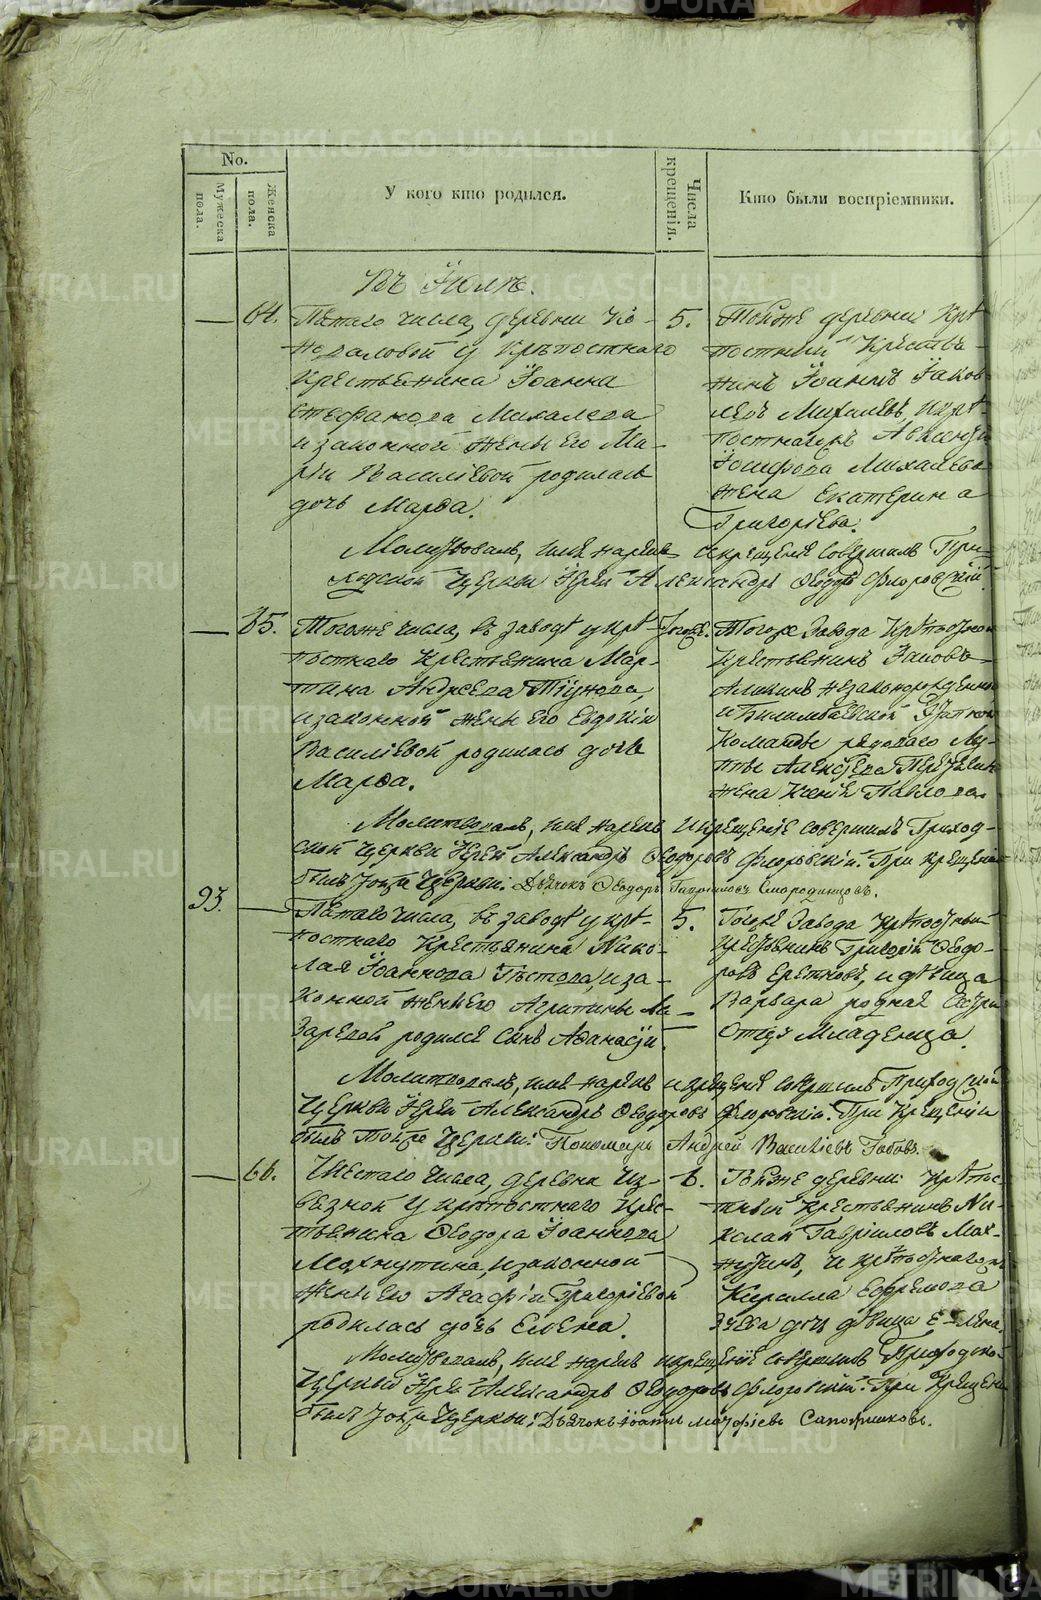 METRIKI.GASO-URAL.RU
No.
Мужеска пола.
Женска пола.
У кого кто родился.
Числа крещенія.
Кто были воспріемники.
Въ Іюлѣ.
— 64. Пятаго числа, деревни Ко-
новаловой у крѣпостнаго
крестьянина Іоанна
Стефанова Михалева
и законной жены его Ма-
ріи Василіевой родилась
дочь Марѳа.
5. Тойже деревни крѣ-
постный крестья-
нинъ Іоаннъ Іаков-
левъ Михалевъ, и крѣ-
постнаго
Іосифова Михалева
жена Екатерина
Григоріева.
Молитвовалъ, имя нарекъ и крещеніе совершилъ При-
ходской церкви Іерей Александръ Ѳеодоровъ Флоровскій.
— 65. Тогоже числа, въ заводѣ у крѣ-
постнаго крестьянина Мар-
тина Андреева Тіунова,
и законной жены его Евдокіи
Василіевой родилась дочь
Марѳа.
Тогоже. Тогоже Завода крѣпостной
крестьянинъ Іаковъ
незаконнорожденной
и Билимбаевской Этапной
Команды рядоваго Лу-
жена Ксенія Павлова.
Молитвовалъ, имя нарекъ и крещеніе совершилъ Приход-
ской церкви Іерей Александръ Ѳеодоровъ Флоровскій. При крещеніи
былъ тойже церкви: Дьячокъ Ѳеодоръ Гавриловъ Смородинцовъ.
93. — Пятаго числа, въ заводѣ у крѣ-
постнаго крестьянина Нико-
лая Іоаннова и за-
конной жены его Агрипины
родился сынъ Аѳанасій.
5. Тогоже Завода крѣпостный
крестьянинъ Григорій Ѳеодо-
ровъ и дѣвица
Варвара родная сестра
отцу младенца.
Молитвовалъ, имя нарекъ и крещеніе совершилъ Приходской
церкви Іерей Александръ Ѳеодоровъ Флоровскій. При крещеніи
былъ тойже церкви: Пономарь Андрей Василіевъ
— 66. Шестаго числа, деревни Из-
вѣзной у крѣпостнаго крес-
тьянина Ѳеодора Іоаннова
Махнутина, и законной
жены его Агафіи Григоріевой
родилась дочь Елена.
6. Тойже деревни крѣпос-
тный крестьянинъ Ни-
колай Гавріиловъ Мах-
нутинъ, и крѣпостнаго
Кирилла Ефремова
дочь дѣвица Елена.
Молитвовалъ, имя нарекъ и крещеніе совершилъ Приходской
церкви Іерей Александръ Ѳеодоровъ Флоровскій. При крещеніи
былъ тойже церкви: Дьячокъ Іоаннъ Матфіевъ Сапожниковъ.